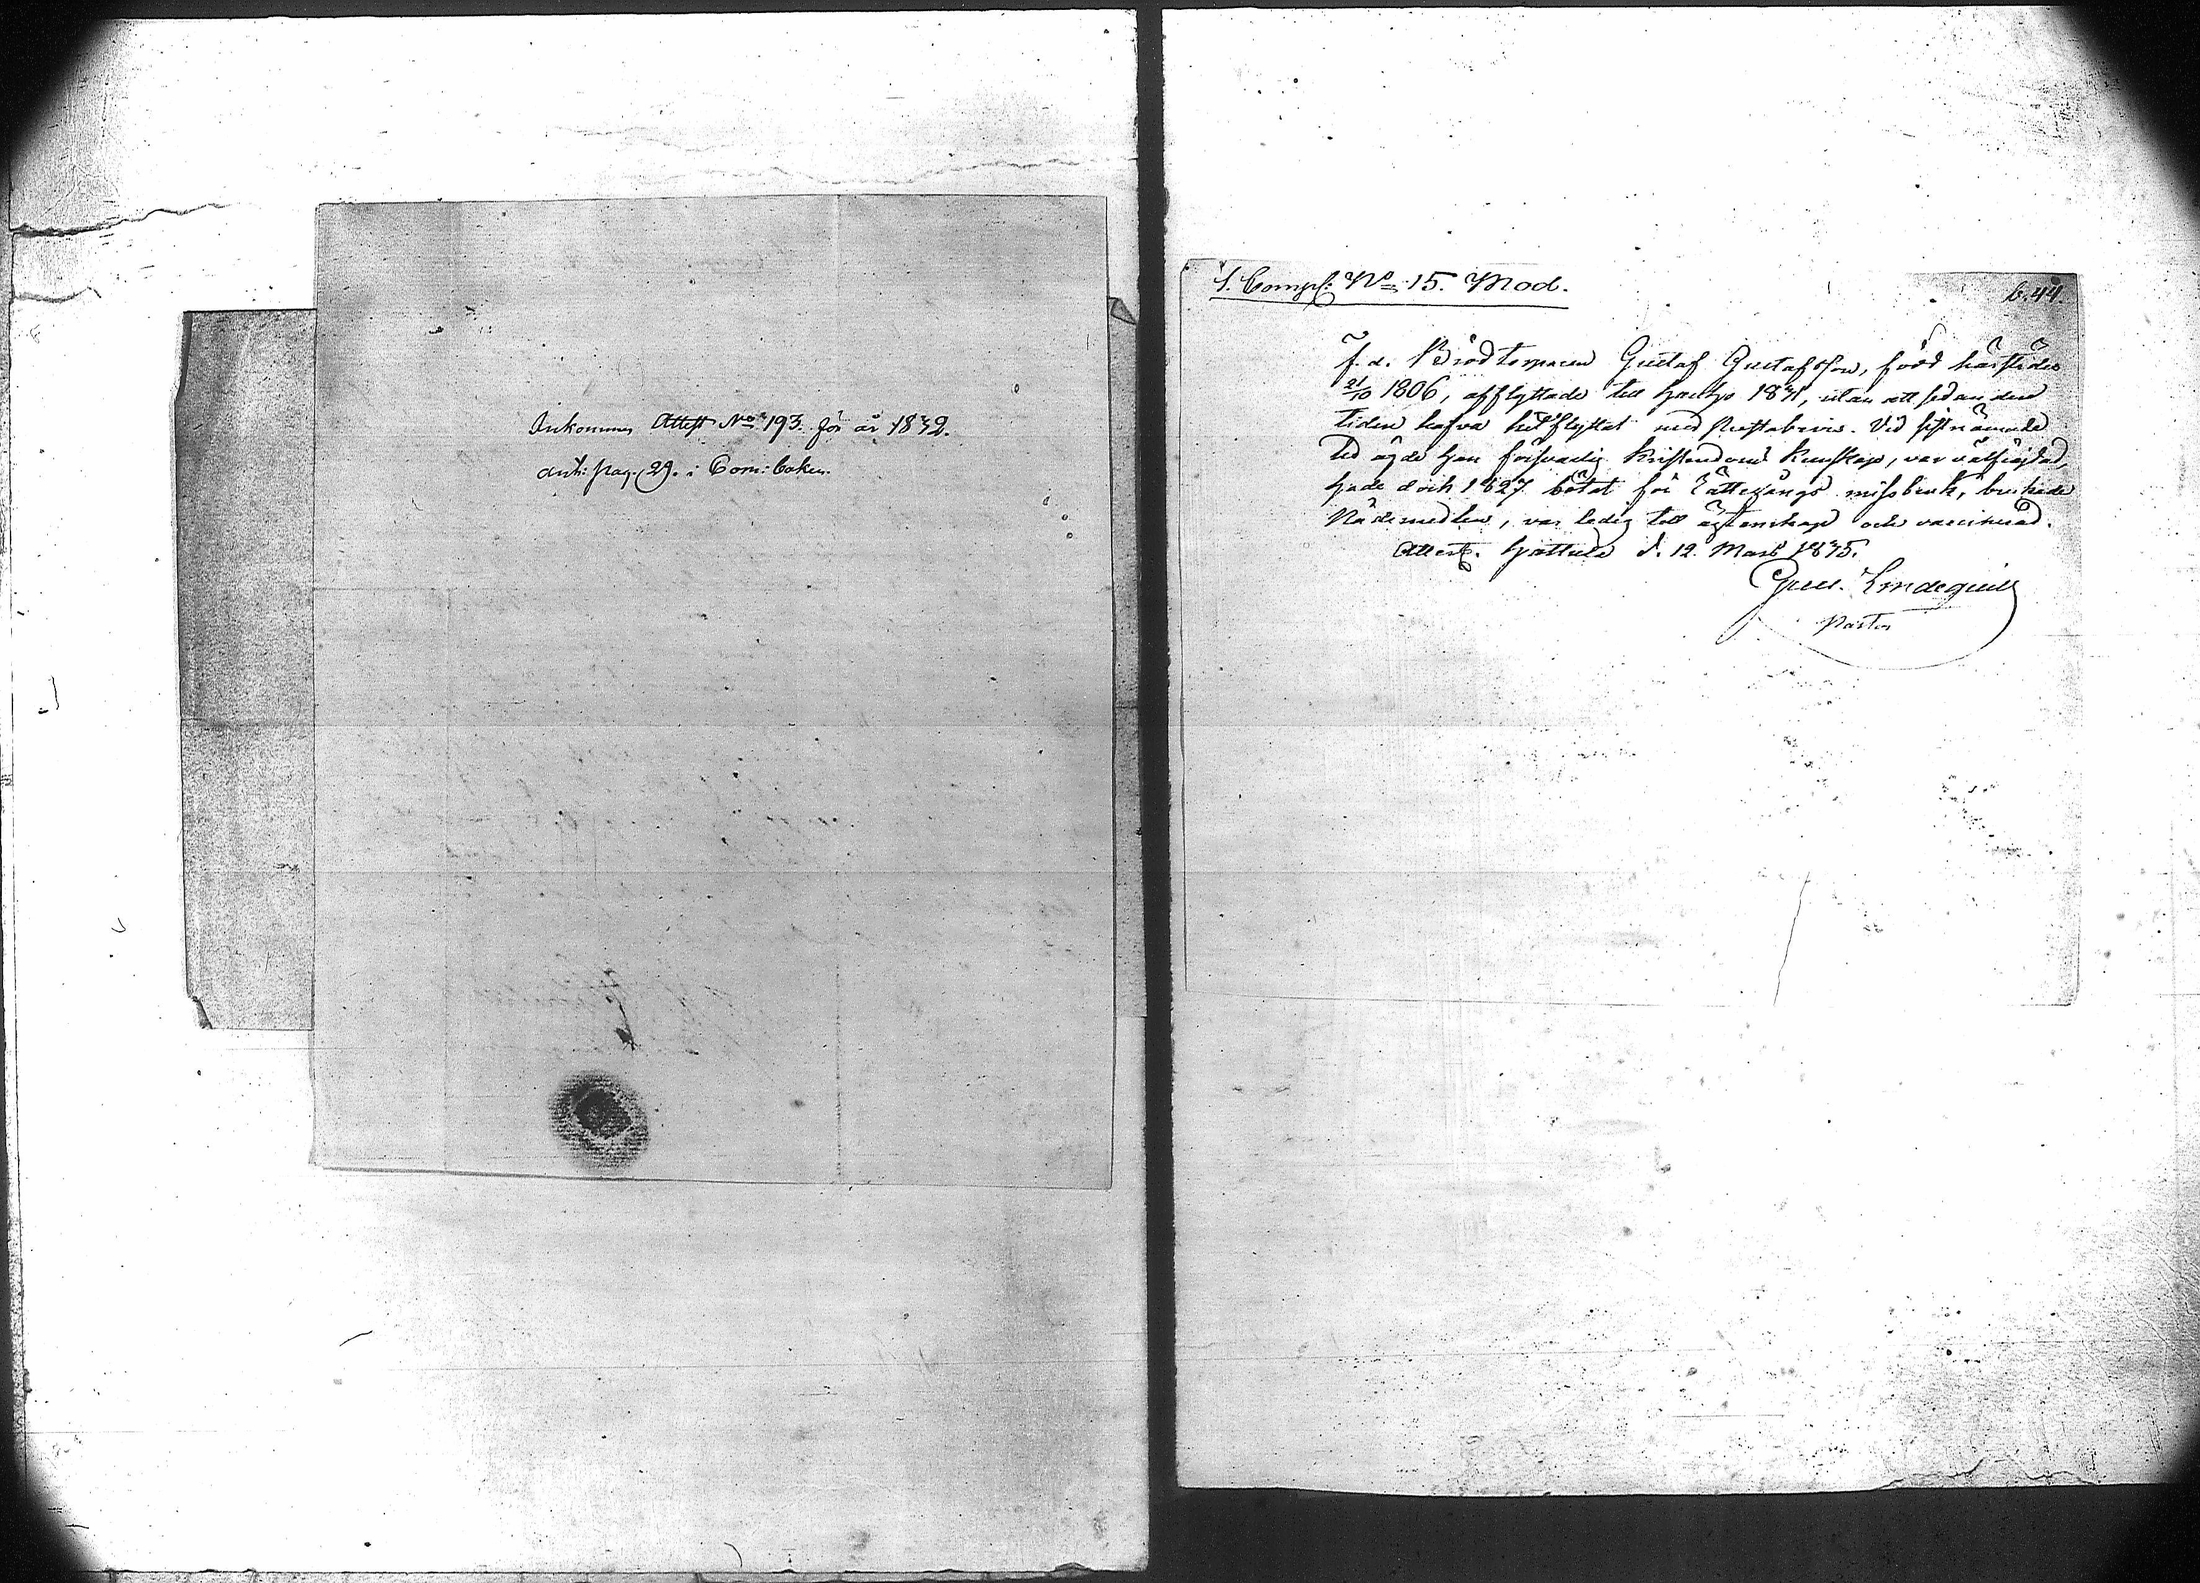 Inkommen Attest No 193. för år 1832.
ant: pag. 29. i Com: boken.
S. Compl: No 15. Mod.
b. 44.
F. d. Gustaf Gustafsson, född härstädes
21/10 1806, afflyttade till 1831, utan att sedan den
tiden hafva hitflyttat med Prestabevis. Vid sistnämnde
tid ägde han försvarlig Kristendoms Kunskap, var välfrejdad,
hade doch 1827 bötat för Rättegångs missbruk, brukade
Nådemedlen, var ledig till ägtenskap och vaccinerad.
Attest. Hattula d. 12. Mars 1835.
Gust. Lindequist
Pastor